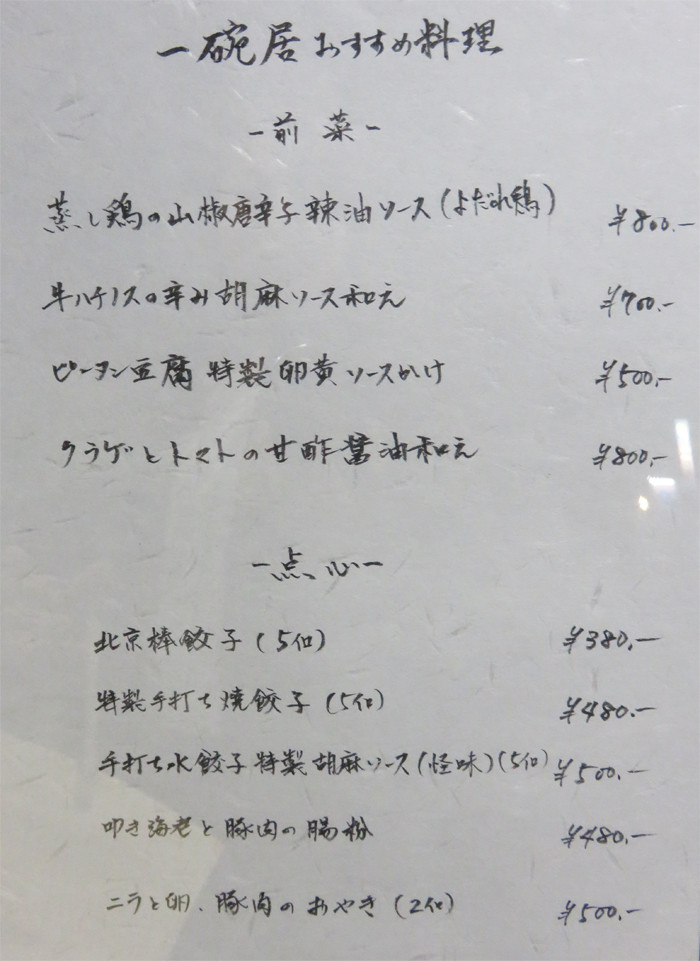 一碗居おすすめ料理
-前菜-
蒸し鶏の山椒唐辛子辣油ソース(よだれ鶏) ¥800.-
牛ハチノスの辛み胡麻ソース和え ¥700.-
ピータン豆腐 特製卵黄ソースかけ ¥500.-
クラゲとトマトの甘酢醤油和え ¥800.-
-点心-
北京棒餃子(5個) ¥380.-
特製手打ち焼餃子(5個) ¥480.-
手打ち水餃子 特製胡麻ソース(怪味)(5個) ¥500.-
叩き海老と豚肉の腸粉 ¥480.-
ニラと卵、豚肉のおやき(2個) ¥500.-